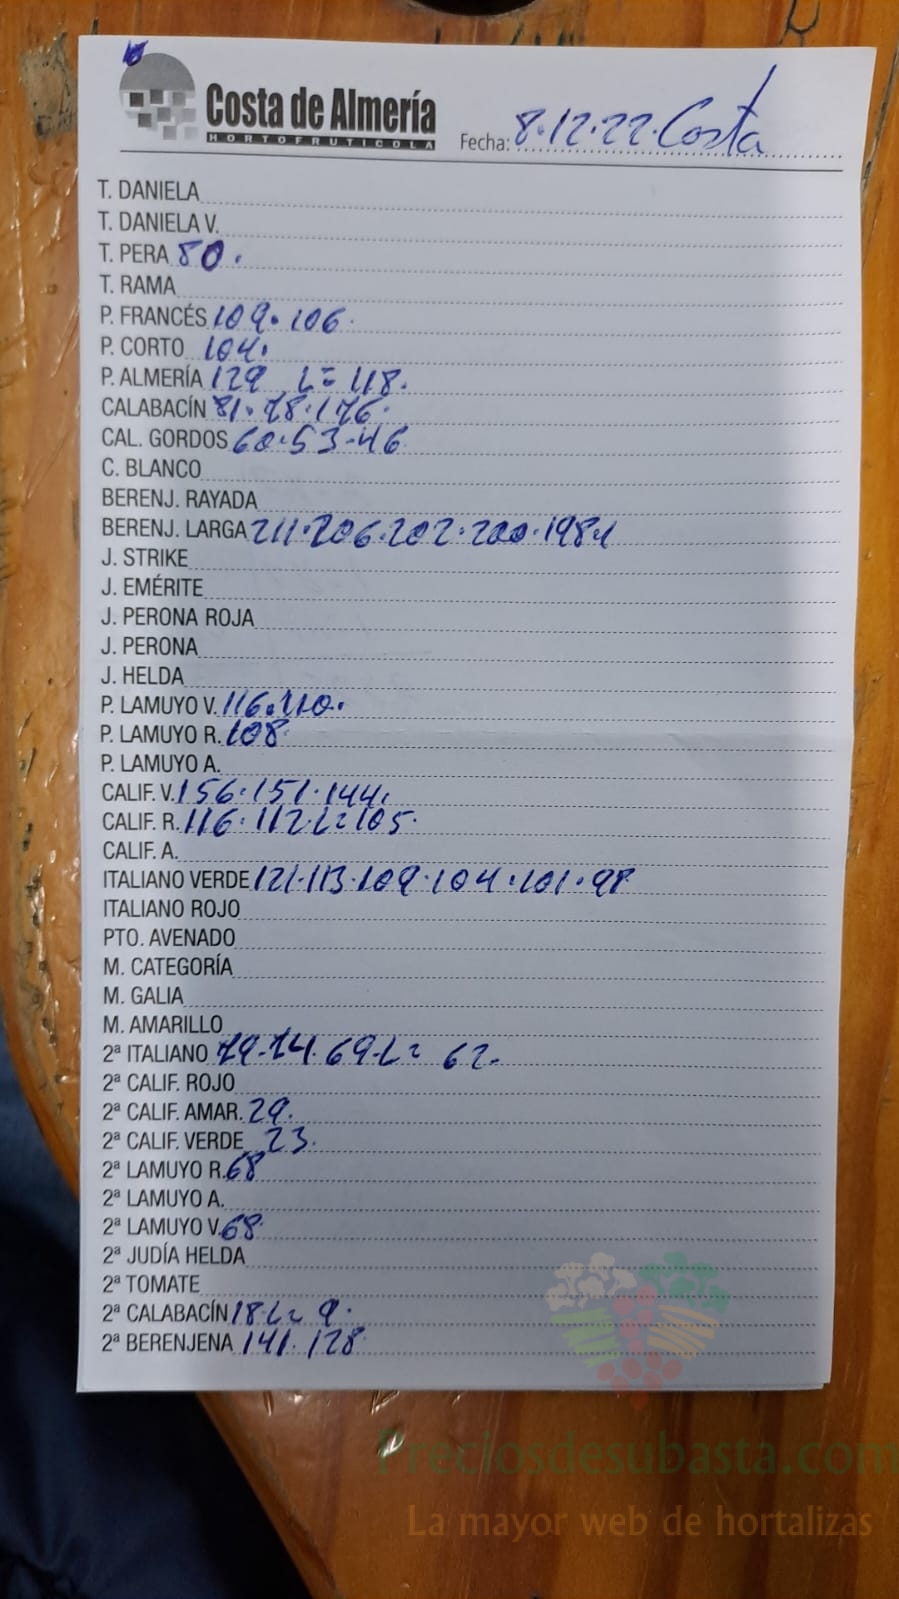 Costa de Almería
HORTOFRUTICOLA
Fecha: 8.12.22. Costa
T. DANIELA
T. DANIELA V.
T. PERA 80.
T. RAMA
P. FRANCÉS 109. 106.
P. CORTO 104.
P. ALMERÍA 129 L= 118.
CALABACÍN 81. 78. 176.
CAL. GORDOS 60.53-46
C. BLANCO
BERENJ. RAYADA
BERENJ. LARGA 211.206.202.200.198
J. STRIKE
J. EMÉRITE
J. PERONA ROJA
J. PERONA
J. HELDA
P. LAMUYO V. 116.110.
P. LAMUYO R. 108
P. LAMUYO A.
CALIF. V. 156.151.144.
CALIF. R. 116.112.L=105.
CALIF. A.
ITALIANO VERDE 121.113.109.104.101.98
ITALIANO ROJO
PTO. AVENADO
M. CATEGORÍA
M. GALIA
M. AMARILLO
2ª ITALIANO 79-74.69-L= 62.
2ª CALIF. ROJO
2ª CALIF. AMAR. 29.
2ª CALIF. VERDE 23.
2ª LAMUYO R. 68
2ª LAMUYO A.
2ª LAMUYO V. 68.
2ª JUDÍA HELDA
2ª TOMATE
2ª CALABACÍN 18.L= 9.
2ª BERENJENA 141.128
Preciosdesubasta.com
La mayor web de hortalizas